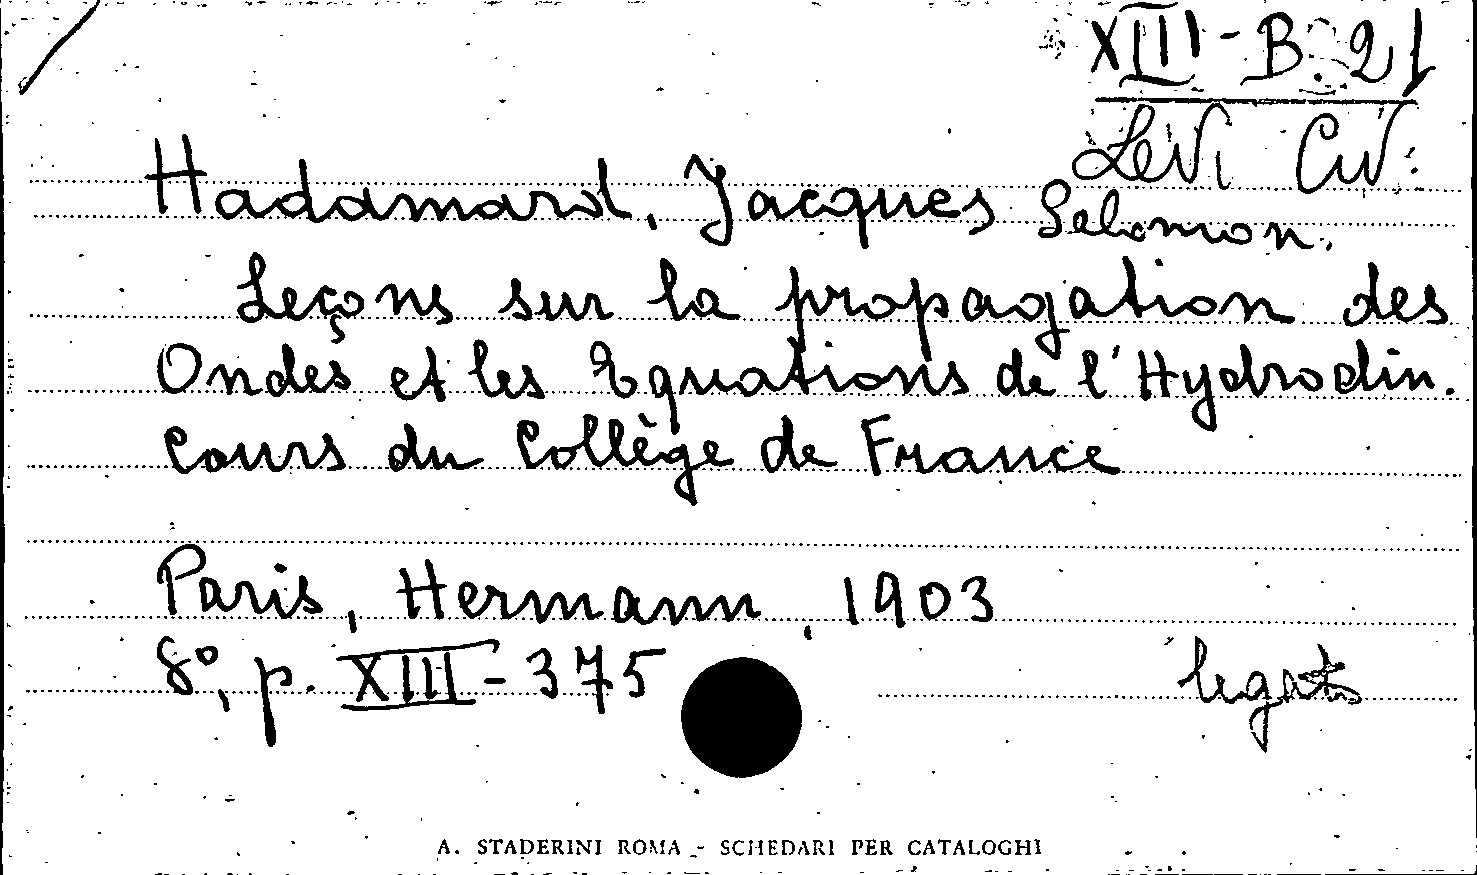 XIII - B. 21
Levi Civ.
Hadamard, Jacques Salomon.
Leçons sur la propagation des
Ondes et les Equations de l'Hydrodin.
Cours du Collège de France
Paris, Hermann, 1903
8°, p. XIII - 375
legato
A. STADERINI ROMA - SCHEDARI PER CATALOGHI